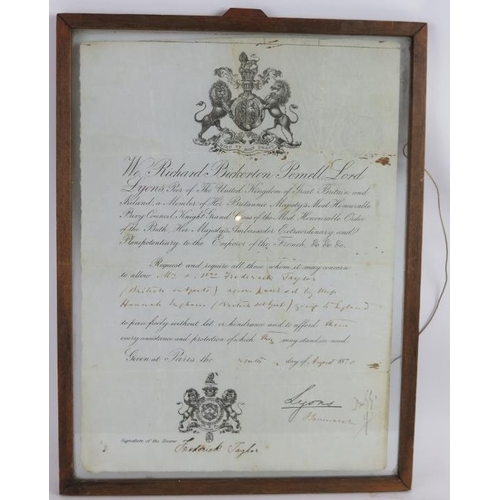 We, Richard Bickerton Pemell Lord
Lyons, Peer of The United Kingdom of Great Britain and
Ireland, a Member of Her Britannic Majesty's Most Honorable
Privy Council, Knight Grand Cross of the Most Honourable Order
of the Bath, Her Majesty's Ambassador Extraordinary and
Plenipotentiary to the Emperor of the French &c &c &c.
Request and require all those whom it may concern
to allow Mr & Mrs Frederick Taylor
(British subjects) accompanied by Miss
Hannah (British subject) going to England
to pass freely without let or hindrance and to afford them
every assistance and protection of which they may stand in need.
Given at Paris the day of August 1870
Lyons
Signature of the Bearer Frederick Taylor